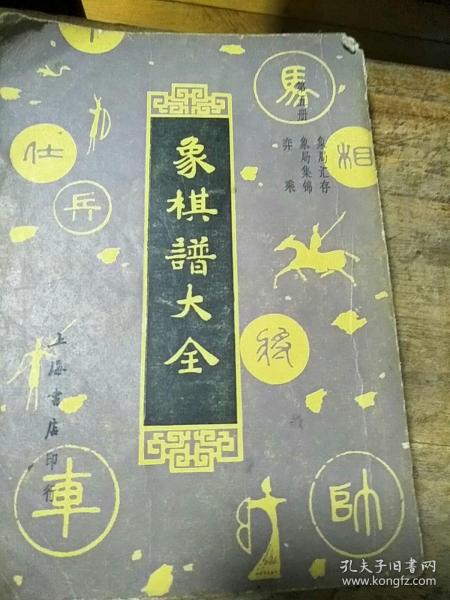 象棋譜大全
第五册
象局汇存
象局集锦
弈乘
上海書店印行
馬
相
仕
兵
車
帥
孔夫子旧书网
www.kongfz.com